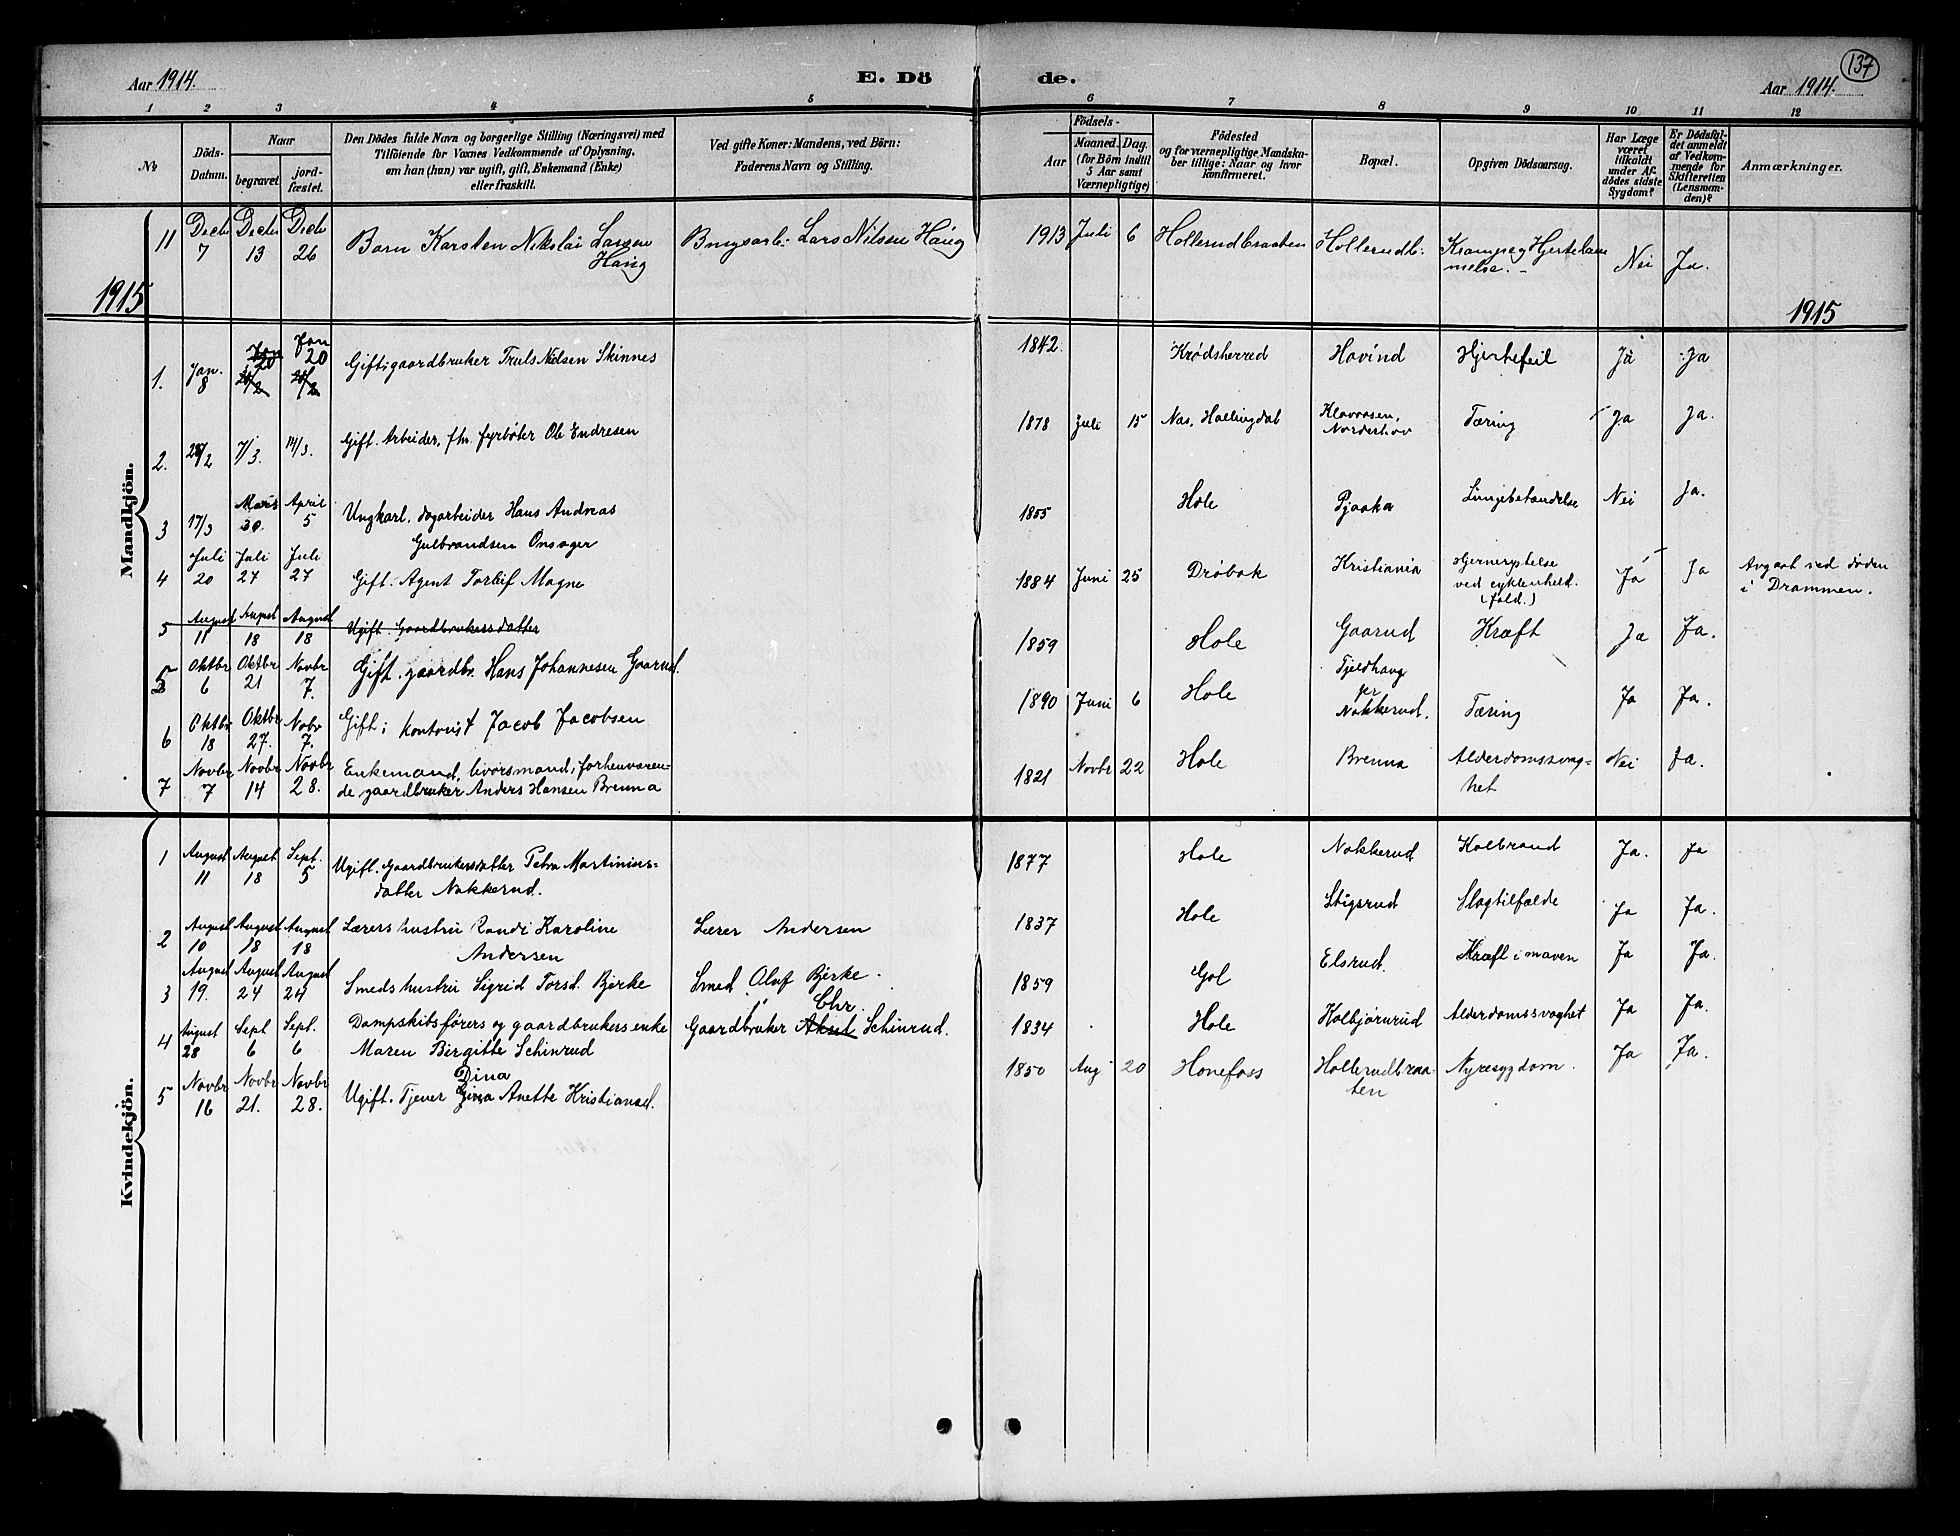 137
Aar 1914.
E. Dö
de.
Aar 1914.
1 2 3 4 5 6 7 8 9 10 11 12
№
Döds-
Datum.
Naar
begravet
jord-
fæstet.
Den Dödes fulde Navn og borgerlige Stilling (Næringsvei) med
Tilföiende for Voxnes Vedkommende af Oplysning,
om han (hun) var ugift, gift, Enkemand (Enke)
eller fraskilt.
Ved gifte Koner: Mandens, ved Börn:
Faderens Navn og Stilling.
Födsels-
Aar
Maaned. Dag.
(for Börn indtil
5 Aar samt
Værnepligtige)
Födested
og for værnepligtige Mandska-
ber tillige: Naar og hvor
konfirmeret.
Bopæl.
Opgiven Dödsaarsag.
Har Læge
været
tilkaldt
under Af-
dödes sidste
Sygdom?
Er Dödsfal-
det anmeldt
af Vedkom-
mende for
Skifteretten
(Lensman-
den)?
Anmærkninger.
Mandkjön.
11 Decbr 7 Decbr 13 Decbr 26 Barn Karsten Nikolai Larsen Brugsarb: Lars Nilsen Haug 1913 Juli 6 Hollerudbraaten Hollerudb: Krampe og Hjertelam
Haug melse. Nei Ja.
1915
1915
1. Jan. 8 Jan 20 Jan 20 Gift; gaardbruker Truls Nilsen Skinnes 1842 Krødsherred Hovind Hjertefeil Ja Ja
2. 28/2 7/3. 14/3. Gift. Arbeider, fhv. fyrbøter Ole Endresen 1878 Juli 15 Nes, Hallingdal Klovvosen, Tæring Ja Ja.
Norderhov
3 17/3 Marts 30. April 5 Ungkarl, dagarbeider Hans Andreas 1855 Hole Pjaaka Lungebetændelse Nei Ja.
Gulbrandsen Onsager
4 Juli 20 Juli 27 Juli 27 Gift. Agent Torleif Magne 1884 Juni 25 Drøbak Kristiania Hjernerystelse Ja Ja Avgaat ved døden
ved cykleuheld. i Drammen.
(fald.)
5 August 11 August 18 August 18 Ugift. Gaardbrukersdatter
5 Oktbr 6 Oktbr 21 Novbr 7. Gift. gaardbr. Hans Johannesen Gaarud. 1859 Hole Gaarud Kræft Ja Ja.
6 Oktbr 18 Oktbr 27. Nobr 7. Gift; kontorist Jacob Jacobsen 1890 Juni 6 Hole Fjeldhaug Tæring Ja Ja.
pr
Nakkerud.
7 Novbr 7 Novbr 14 Novbr 28. Enkemand, livørsmand, forhenværen- 1821 Novbr 22 Hole Brenna Alderdomssvag- Nei Ja.
de gaardbruker Anders Hansen Brenna het
Kvindekjön.
1 August 11 August 18 Sept. 5 Ugift. Gaardbrukersdatter Petra Martinius- 1877 Hole Nakkerud Kolbrand Ja. Ja
datter Nakkerud.
2 August 10 August 18 August 18 Lærers hustru Randi Karoline Lærer Andersen 1837 Hole Stigsrud Slagtilfælde Ja Ja.
Andersen
3 August 19. August 24 August 24 Smeds hustru Sigrid Torsd. Bjerke Smed Oluf Bjerke. 1859 Gol Elsrud. Kræft i maven Ja Ja.
4 August 28 Sept 6 Sept. 6 Dampskibsførers og gaardbrukers enke Gaardbruker Aksel Chr. Schinrud. 1834 Hole Kolbjørnrud Alderdomssvaghet Ja Ja.
Maren Birgitte Schinrud
5 Novbr 16 Novbr 21. Novbr 28. Ugift. Tjener Gina Dina Anette Kristiansd. 1850 Aug 20 Hønefoss Hollerudbraa- Nyresygdom. Ja Ja.
ten